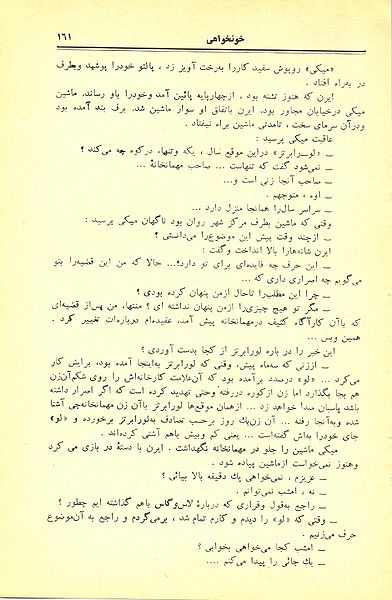 خونخواهی ۱۶۱
«میکی» روپوش سفید کاررا به‌رخت آویز زد ، پالتو خودرا پوشید وبطرف
در به‌راه افتاد .
ایرن که هنوز تشنه بود ، ازچهارپایه پائین آمد وخودرا باو رساند. ماشین
میکی درخیابان مجاور بود. ایرن باتفاق او سوار ماشین شد. برف بند آمده بود
ودرآن سرمای سخت ، تامدتی ماشین براه نیفتاد .
عاقبت میکی پرسید :
ــ «لورابرتز» دراین موقع سال ، یکه وتنها، درکوه چه می‌کند ؟
ــ نمی‌شود گفت که تنهاست ... صاحب مهمانخانهٔ ...
ــ صاحب آنجا زنی است و...
ــ اوه ، متوجهم .
ــ سراسر سال‌را همانجا منزل دارد ...
وقتی که ماشین بطرف مرکز شهر روان بود ناگهان میکی پرسید :
ــ ازچند وقت پیش این موضوع‌را می‌دانستی ؟
ایرن شانه‌هارا بالا انداخت وگفت :
ــ این حرف چه فایده‌ای برای تو دارد؟... حالا که من این قضیه‌را بتو
می‌گویم چه اصراری داری که ...
ــ چرا این مطلب‌را تاحال ازمن پنهان کرده بودی ؟
ــ مگر تو هیچ چیزی‌را ازمن پنهان نداشته ای ؟ منتها، من پس‌از قضیه‌ای
که باآن کارآگاه کثیف درمهمانخانه پیش آمد، عقیده‌ام درباره‌ات تغییر کرد .
همین وبس ...
این خبر را در باره لورابرتز از کجا بدست آوردی ؟
ــ اززنی که سه‌ماه پیش، وقتی که لورابرتز به‌اینجا آمده بود، برایش کار
می‌کرد ... «لو» درصدد برآمده بود که آن‌علامت کارخانه‌اش را روی شکم‌آن‌زن
هم بجا بگذارد اما زن ازکوره دررفته وحتی تهدید کرده است که اگر اصرار داشته
باشد پاسبان صدا خواهد زد ... ازهمان موقع‌ها لورابرتز باآن زن مهمانخانه‌چی آشنا
شده وبه‌آنجا رفته ... آن زن‌یک روز برحسب تصادف به‌لورابرتز برخورده و «لو»
جای خودرا به‌اش گفته‌است ... یعنی کم وبیش باهم آشتی کرده‌اند .
میکی ماشین را جلو در مهمانخانه نگهداشت . ایرن با دستهٔ در بازی می کرد
وهنوز نمی‌خواست ازماشین پیاده شود .
ــ عزیزم ، نمی‌خواهی یک دقیقه بالا بیائی ؟
ــ نه ، امشب نمی‌توانم .
ــ راجع به‌قول وقراری که دربارهٔ لاس‌وگاس باهم گذاشته ایم چطور ؟
ــ وقتی که «لو» را دیدم و کارم تمام شد ، برمی‌گردم و راجع به آن‌موضوع
حرف می‌زنیم .
ــ امشب کجا می‌خواهی بخوابی ؟
ــ یک جائی را پیدا می‌کنم ....